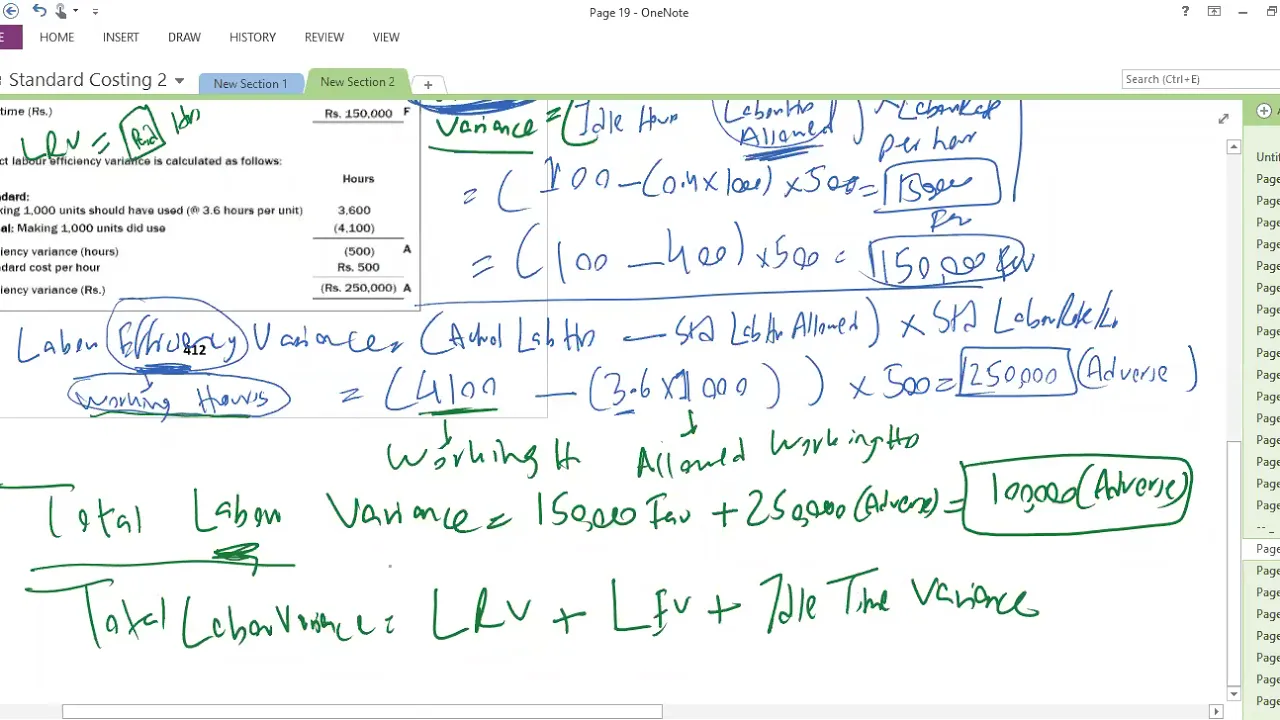 Page 19 - OneNote
HOME INSERT DRAW HISTORY REVIEW VIEW
Standard Costing 2 New Section 1 New Section 2 +
Search (Ctrl+E)
time (Rs.) Rs. 150,000 F
LRV = Paid Hrs
ct labour efficiency variance is calculated as follows:
Hours
ndard:
king 1,000 units should have used (@ 3.6 hours per unit) 3,600
al: Making 1,000 units did use (4,100)
iency variance (hours) (500) A
dard cost per hour Rs. 500
iency variance (Rs.) (Rs. 250,000) A
Variance = (Idle Hour Labor Hr Allowed) × Labor Rate per hour
= (100 - (0.4 × 1000) × 500 = 150,000 Fav
= (100 - 400) × 500 = 150,000 Fav
Labor Efficiency Variance = (Actual Lab Hrs - Std Lab Hr Allowed) × Std Labor Rate/hr
412
Working Hours = (4100 - (3.6 × 1000)) × 500 = 250,000 (Adverse)
Working H Allowed Working Hr
Total Labor Variance = 150,000 Fav + 250,000 (Adverse) = 100,000 (Adverse)
Total Labor Variance = LRV + LEV + Idle Time Variance
Unti
Page
Page
Page
Page
Page
Page
Page
Page
Page
Page
Page
Page
Page
Page
Page
Page
Page
Page
Page
Page
Page
Page
Page
Page